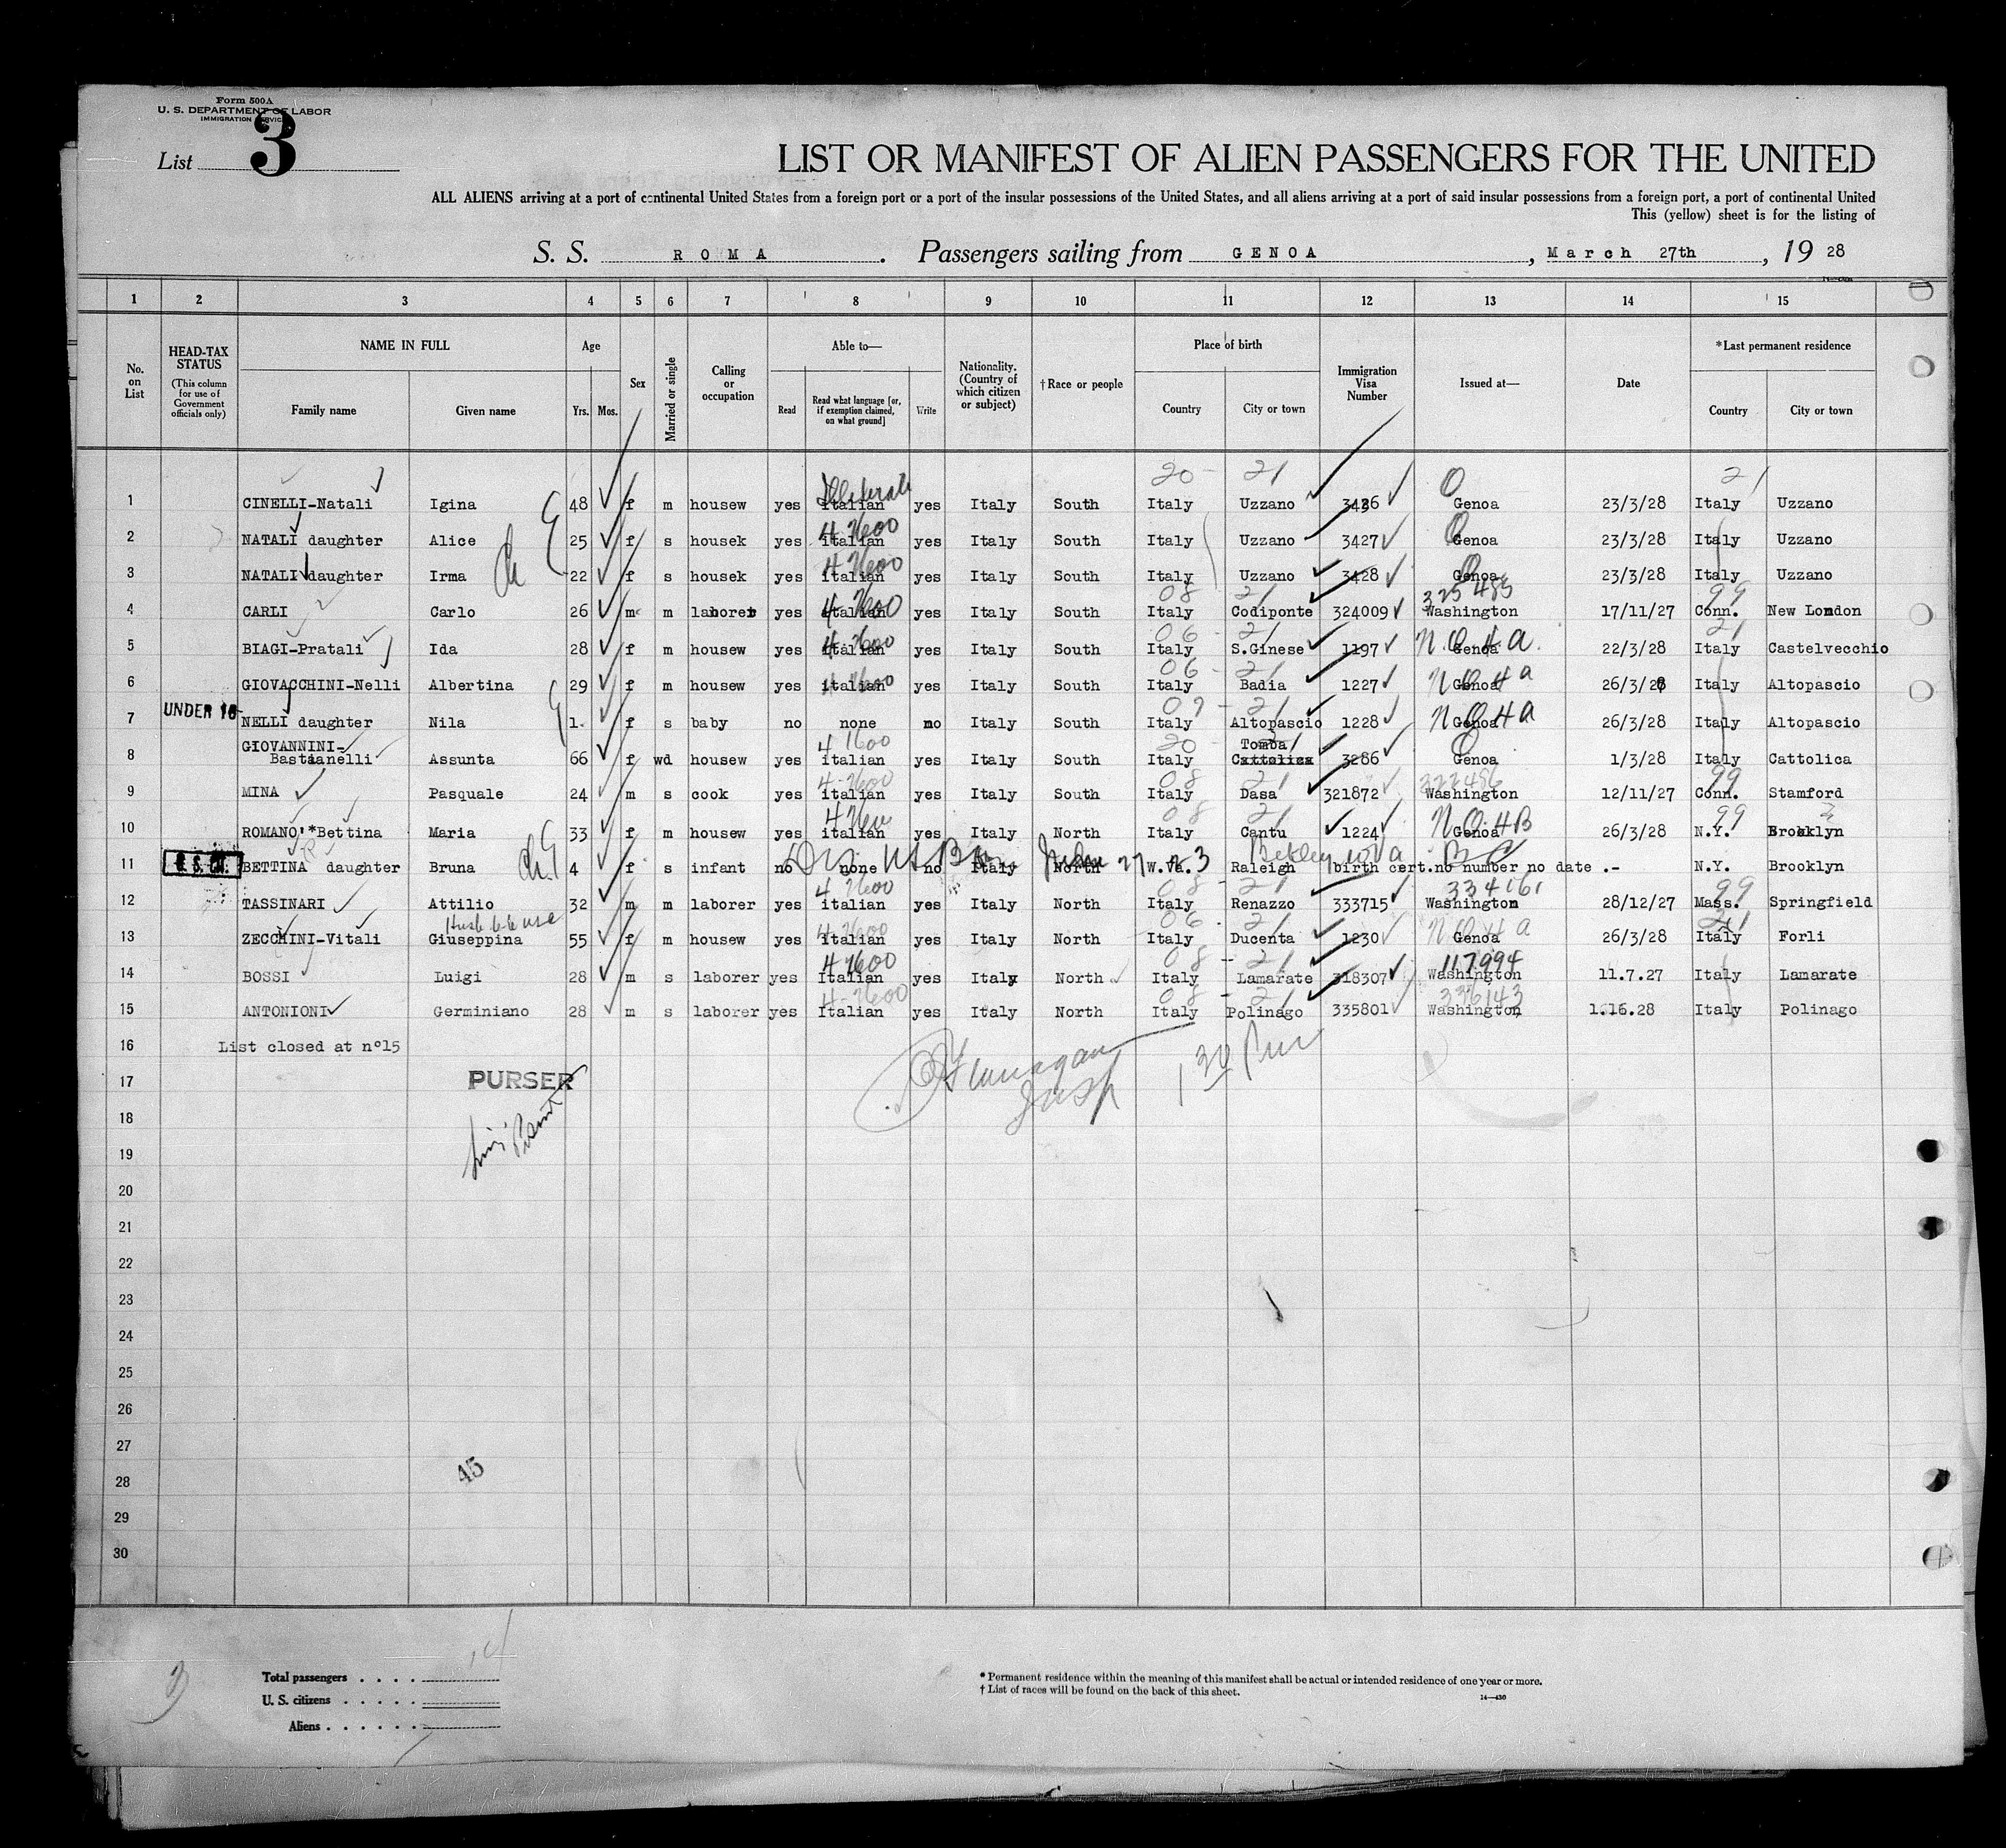 Form 500A
U. S. DEPARTMENT OF LABOR
IMMIGRATION SERVICE
List 3
LIST OR MANIFEST OF ALIEN PASSENGERS FOR THE UNITED
ALL ALIENS arriving at a port of continental United States from a foreign port or a port of the insular possessions of the United States, and all aliens arriving at a port of said insular possessions from a foreign port, a port of continental United
This (yellow) sheet is for the listing of
S. S. ROMA. Passengers sailing from GENOA, March 27th, 19 28
1 2 3 4 5 6 7 8 9 10 11 12 13 14 15
No. on List
HEAD-TAX STATUS (This column for use of Government officials only)
NAME IN FULL Family name Given name
Age Yrs. Mos.
Sex
Married or single
Calling or occupation
Able to— Read Read what language [or, if exemption claimed, on what ground] Write
Nationality. (Country of which citizen or subject)
†Race or people
Place of birth Country City or town
Immigration Visa Number
Issued at—
Date
*Last permanent residence Country City or town
20 - 21 21
1 CINELLI-Natali Igina 48 f m housew yes italian yes Italy South Italy Uzzano 3426 Genoa 23/3/28 Italy Uzzano
2 NATALI daughter Alice 25 f s housek yes italian yes Italy South Italy Uzzano 3427 Genoa 23/3/28 Italy Uzzano
3 NATALI daughter Irma 22 f s housek yes italian yes Italy South Italy Uzzano 3428 Genoa 23/3/28 Italy Uzzano
08 21 325483 99
4 CARLI Carlo 26 m m laborer yes italian yes Italy South Italy Codiponte 324009 Washington 17/11/27 Conn. New London
06 - 21 21
5 BIAGI-Pratali Ida 28 f m housew yes italian yes Italy South Italy S.Ginese 1197 Genoa 22/3/28 Italy Castelvecchio
06 - 21
6 GIOVACCHINI-Nelli Albertina 29 f m housew yes italian yes Italy South Italy Badia 1227 Genoa 26/3/28 Italy Altopascio
UNDER 16
7 NELLI daughter Nila 1. f s baby no none no Italy South Italy Altopascio 1228 Genoa 26/3/28 Italy Altopascio
GIOVANNINI- Tomba
8 Bastianelli Assunta 66 f wd housew yes italian yes Italy South Italy Cattolica 3286 Genoa 1/3/28 Italy Cattolica
08 21 322486 99
9 MINA Pasquale 24 m s cook yes italian yes Italy South Italy Dasa 321872 Washington 12/11/27 Conn. Stamford
10 ROMANO'*Bettina Maria 33 f m housew yes italian yes Italy North Italy Cantu 1224 Genoa 26/3/28 N.Y. Brooklyn
11 BETTINA daughter Bruna 4 f s infant no none no Italy North W.Va. Raleigh birth cert.no number no date .- N.Y. Brooklyn
08 - 21 99
12 TASSINARI Attilio 32 m m laborer yes italian yes Italy North Italy Renazzo 333715 Washington 28/12/27 Mass. Springfield
06 - 21 21
13 ZECCHINI-Vitali Giuseppina 55 f m housew yes italian yes Italy North Italy Ducenta 1230 Genoa 26/3/28 Italy Forli
08 - 21 117994
14 BOSSI Luigi 28 m s laborer yes Italian yes Italy North Italy Lamarate 318307 Washington 11.7.27 Italy Lamarate
08 - 21 336143
15 ANTONIONI Germiniano 28 m s laborer yes Italian yes Italy North Italy Polinago 335801 Washington 1.16.28 Italy Polinago
16 List closed at n°15
17 PURSER
18
19
20
21
22
23
24
25
26
27
28 45
29
30
Total passengers . . . . 14
U. S. citizens . . . . .
Aliens . . . . . .
* Permanent residence within the meaning of this manifest shall be actual or intended residence of one year or more.
† List of races will be found on the back of this sheet.
14—430